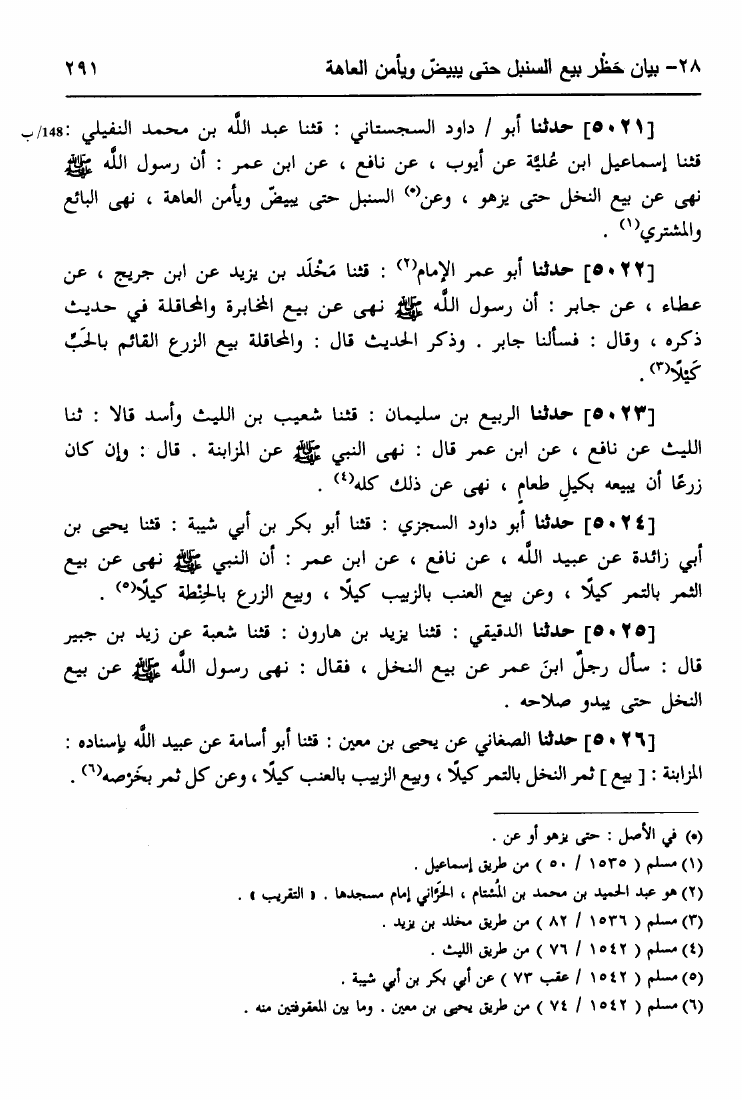 ٢٨- بيان حَظْر بيع السنبل حتى يبيضّ ويأمن العاهة ٢٩١
[٥٠٢١] حدثنا أبو / داود السجستاني : قثنا عبد اللَّه بن محمد النفيلي : 148/ب
قثنا إسماعيل ابن عُليَّة عن أيوب ، عن نافع ، عن ابن عمر : أن رسول اللَّه ﷺ
نهى عن بيع النخل حتى يزهو ، وعن(*) السنبل حتى يبيضّ ويأمن العاهة ، نهى البائع
والمشتري(١) .
[٥٠٢٢] حدثنا أبو عمر الإمام(٢) : قثنا مَخْلَد بن يزيد عن ابن جريج ، عن
عطاء ، عن جابر : أن رسول اللَّه ﷺ نهى عن بيع المخابرة والمحاقلة في حديث
ذكره ، وقال : فسألنا جابر . وذكر الحديث قال : والمحاقلة بيع الزرع القائم بالحَبِّ
كَيْلًا(٣) .
[٥٠٢٣] حدثنا الربيع بن سليمان : قثنا شعيب بن الليث وأسد قالا : ثنا
الليث عن نافع ، عن ابن عمر قال : نهى النبي ﷺ عن المزابنة . قال : وإن كان
زرعًا أن يبيعه بكيلِ طعامٍ ، نهى عن ذلك كله(٤) .
[٥٠٢٤] حدثنا أبو داود السجزي : قثنا أبو بكر بن أبي شيبة : قثنا يحيى بن
أبي زائدة عن عبيد اللَّه ، عن نافع ، عن ابن عمر : أن النبي ﷺ نهى عن بيع
الثمر بالتمر كيلًا ، وعن بيع العنب بالزبيب كيلًا ، وبيع الزرع بالحِنْطة كيلًا(٥) .
[٥٠٢٥] حدثنا الدقيقي : قثنا يزيد بن هارون : قثنا شعبة عن زيد بن جبير
قال : سأل رجلٌ ابنَ عمر عن بيع النخل ، فقال : نهى رسول اللَّه ﷺ عن بيع
النخل حتى يبدو صلاحه .
[٥٠٢٦] حدثنا الصغاني عن يحيى بن معين : قثنا أبو أسامة عن عبيد اللَّه بإسناده :
المزابنة : [ بيع ] ثمر النخل بالتمر كيلًا ، وبيع الزبيب بالعنب كيلًا ، وعن كل ثمر بخَرْصه(٦) .
(*) في الأصل : حتى يزهو أو عن .
(١) مسلم ( ١٥٣٥ / ٥٠ ) من طريق إسماعيل .
(٢) هو عبد الحميد بن محمد بن المُسْتام ، الحَرَّاني إمام مسجدها . « التقريب » .
(٣) مسلم ( ١٥٣٦ / ٨٢ ) من طريق مخلد بن يزيد .
(٤) مسلم ( ١٥٤٢ / ٧٦ ) من طريق الليث .
(٥) مسلم ( ١٥٤٢ / عقب ٧٣ ) عن أبي بكر بن أبي شيبة .
(٦) مسلم ( ١٥٤٢ / ٧٤ ) من طريق يحيى بن معين . وما بين المعقوفتين منه .